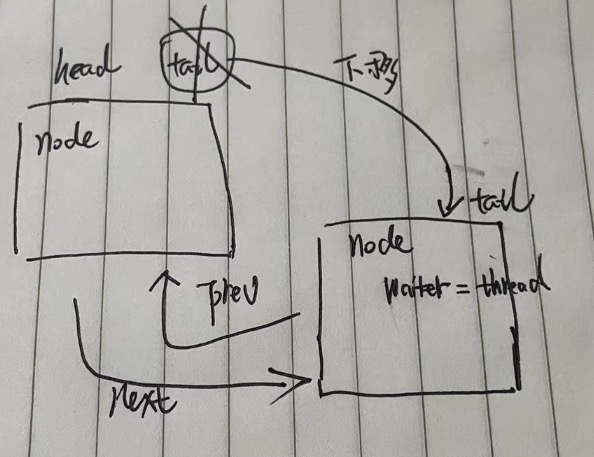 head
tail
下移
node
tail
node
waiter = thread
prev
next